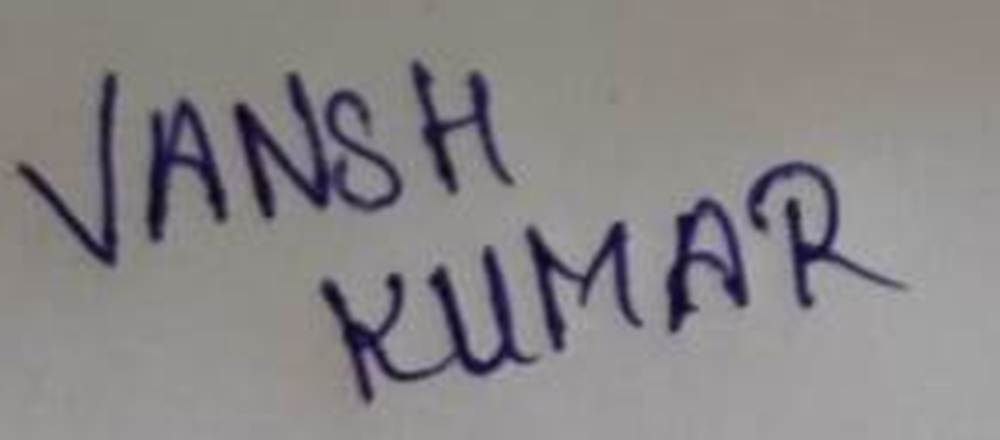 VANSH
KUMAR